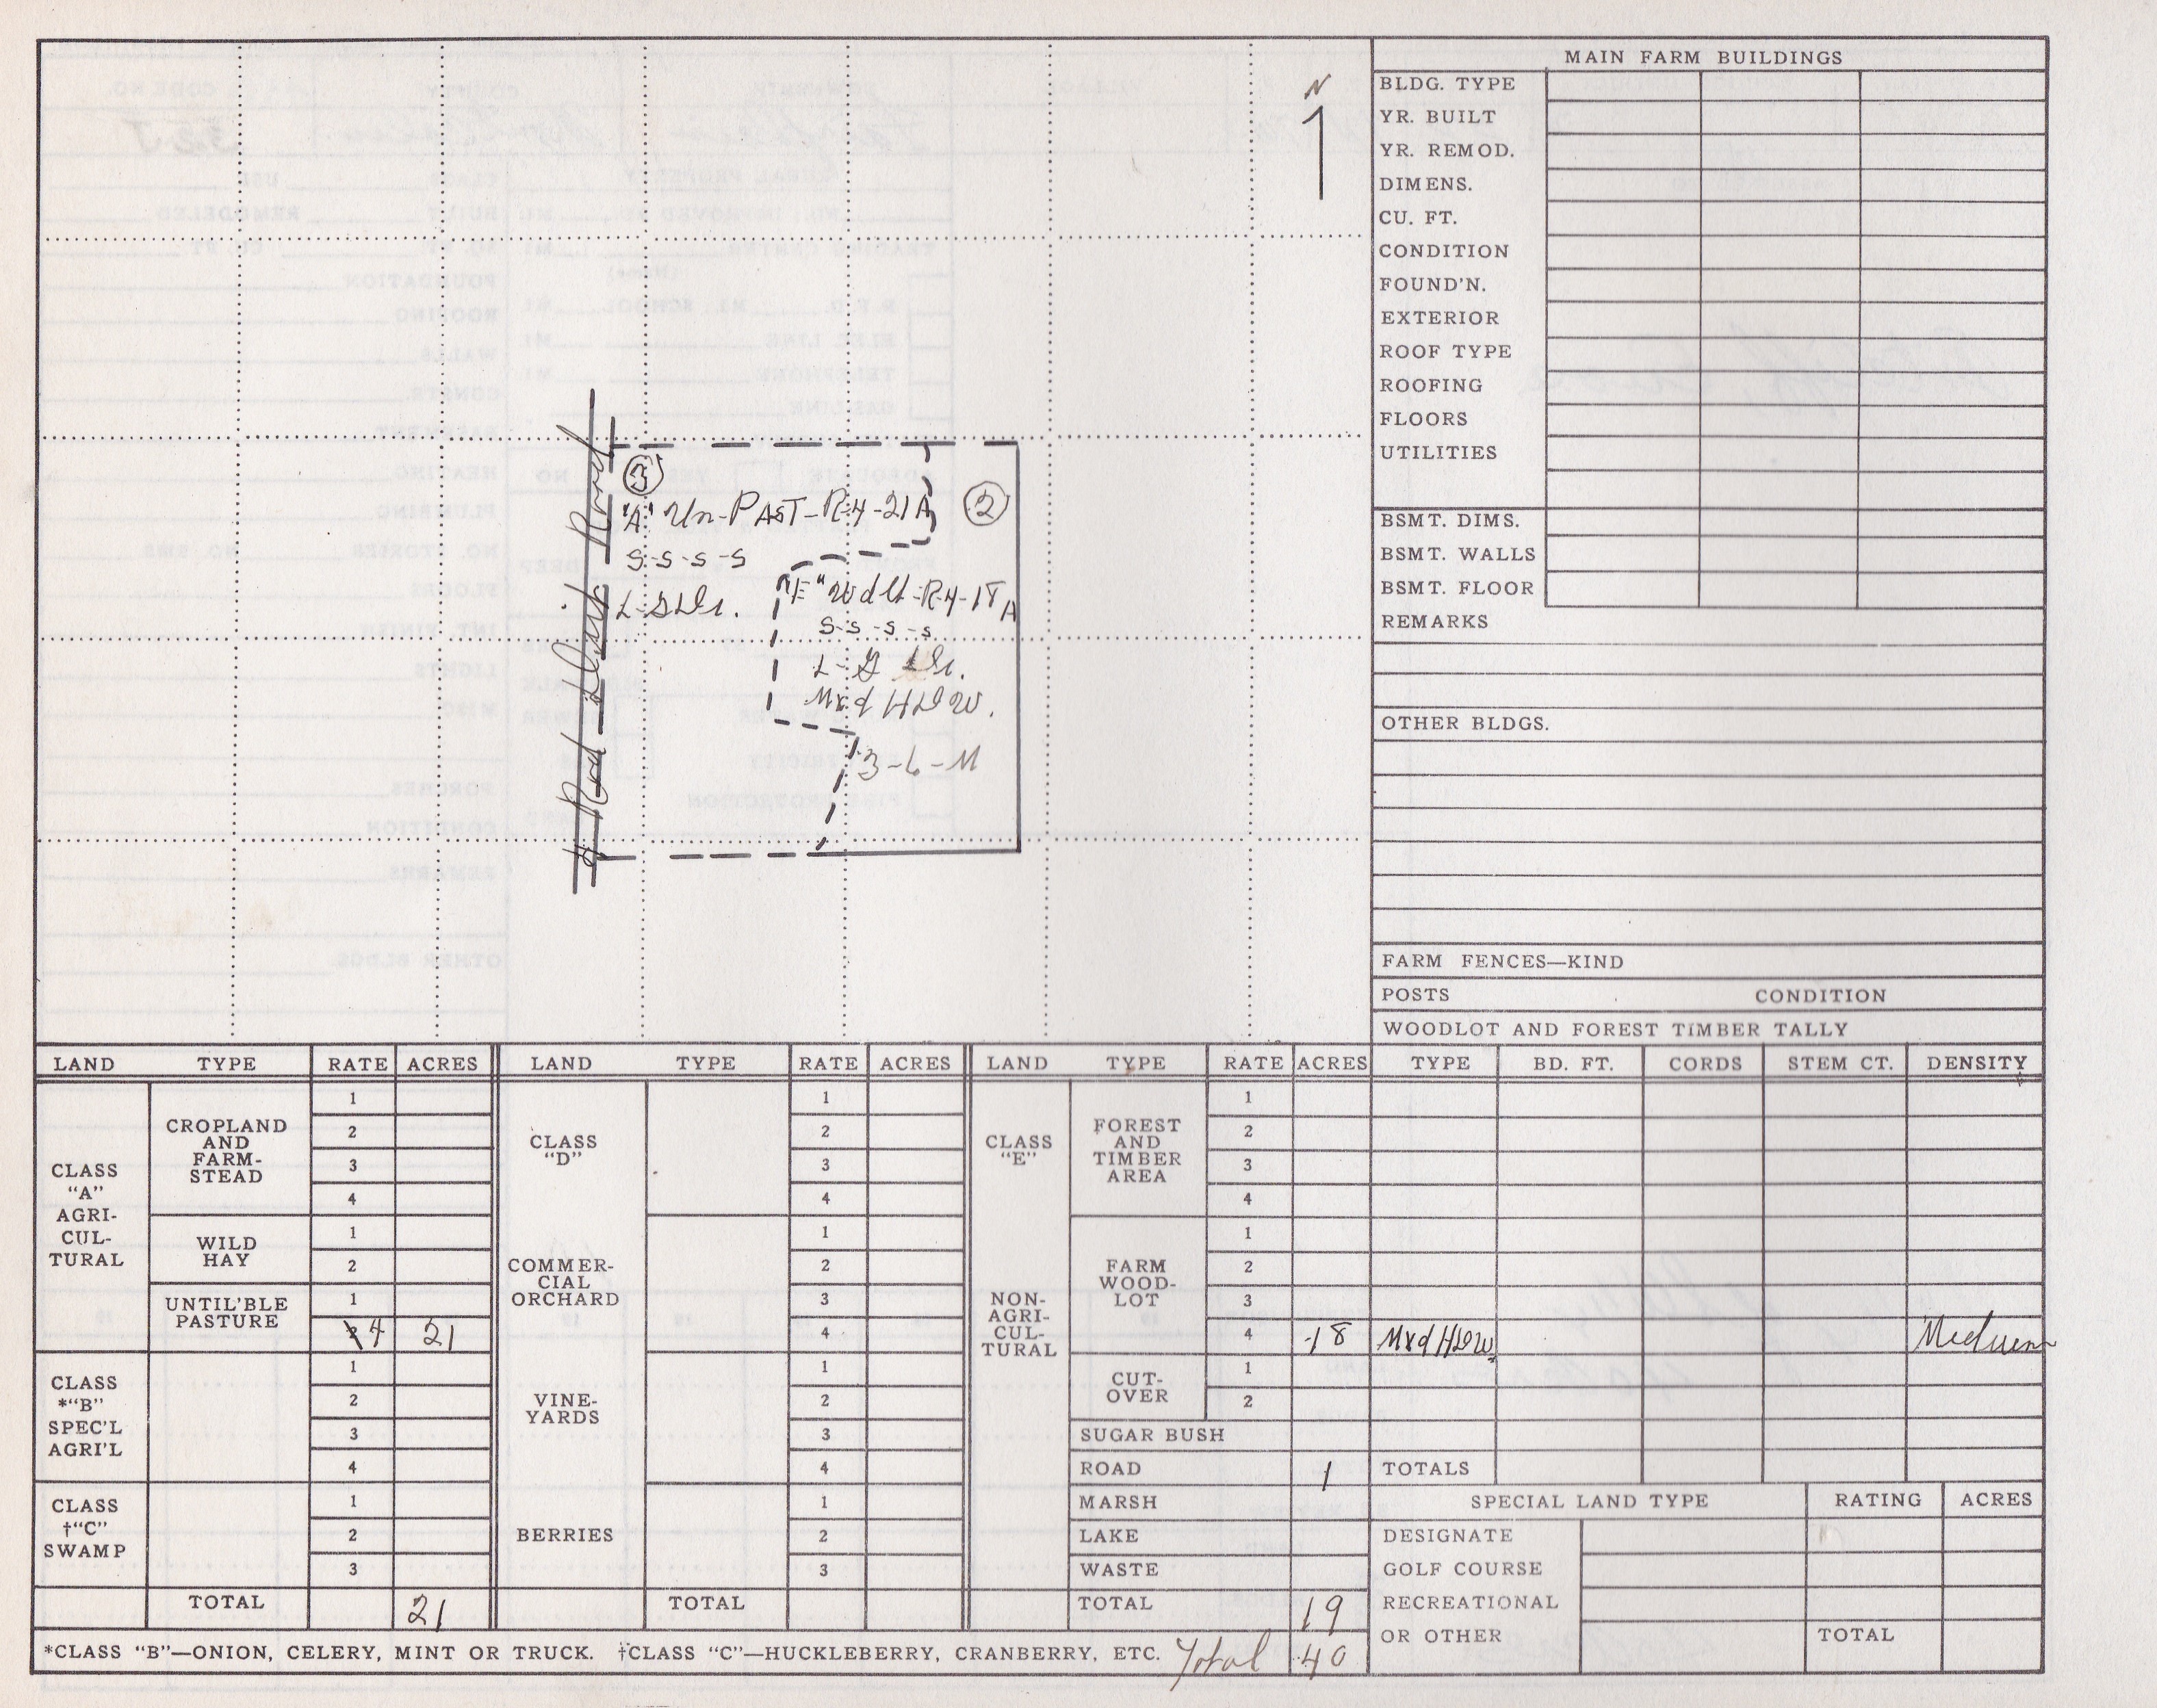 N
1
3
"A" Un-PAST-R-4-21A
S-S-S-S
2
"E" Wdlt-R-4-18A
S-S-S-S
Mxd HDW.
3-6-M
Road
MAIN FARM BUILDINGS
BLDG. TYPE
YR. BUILT
YR. REMOD.
DIMENS.
CU. FT.
CONDITION
FOUND'N.
EXTERIOR
ROOF TYPE
ROOFING
FLOORS
UTILITIES
BSMT. DIMS.
BSMT. WALLS
BSMT. FLOOR
REMARKS
OTHER BLDGS.
FARM FENCES—KIND
POSTS CONDITION
WOODLOT AND FOREST TIMBER TALLY
LAND TYPE RATE ACRES LAND TYPE RATE ACRES LAND TYPE RATE ACRES TYPE BD. FT. CORDS STEM CT. DENSITY
CLASS
"A"
AGRI-
CUL-
TURAL
CROPLAND
AND
FARM-
STEAD
1
2
3
4
WILD
HAY
1
2
UNTIL'BLE
PASTURE
1
4 21
CLASS
*"B"
SPEC'L
AGRI'L
1
2
3
4
CLASS
†"C"
SWAMP
1
2
3
TOTAL 21
CLASS
"D"
1
2
3
4
COMMER-
CIAL
ORCHARD
1
2
3
4
VINE-
YARDS
1
2
3
4
BERRIES
1
2
3
TOTAL
CLASS
"E"
NON-
AGRI-
CUL-
TURAL
FOREST
AND
TIMBER
AREA
1
2
3
4
FARM
WOOD-
LOT
1
2
3
4 18 Mxd HDW. Medium
CUT-
OVER
1
2
SUGAR BUSH
ROAD 1 TOTALS
MARSH
LAKE
WASTE
TOTAL 19
SPECIAL LAND TYPE RATING ACRES
DESIGNATE
GOLF COURSE
RECREATIONAL
OR OTHER TOTAL
*CLASS "B"—ONION, CELERY, MINT OR TRUCK. †CLASS "C"—HUCKLEBERRY, CRANBERRY, ETC. Total 40